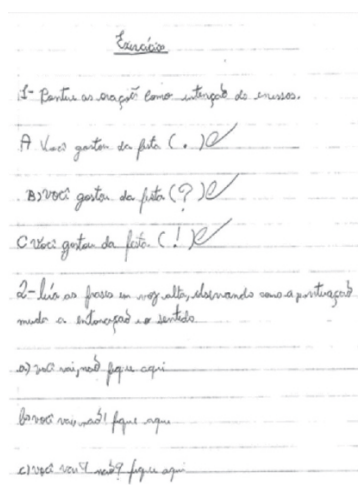 Exercício
1- Pontue as oraçoẽ como intençaõ do emissor.
A Você gostou da festa ( . )
B) você gostou da festa ( ? )
C você gostou da festa ( ! )
2- leia as frases em voz alta, observando como a pontuaçaõ
muda a entonaçaõ e o sentido
a) você vai, naõ fique aqui
b você vai, naõ! fique aqui
c) você vai? naõ? fique aqui